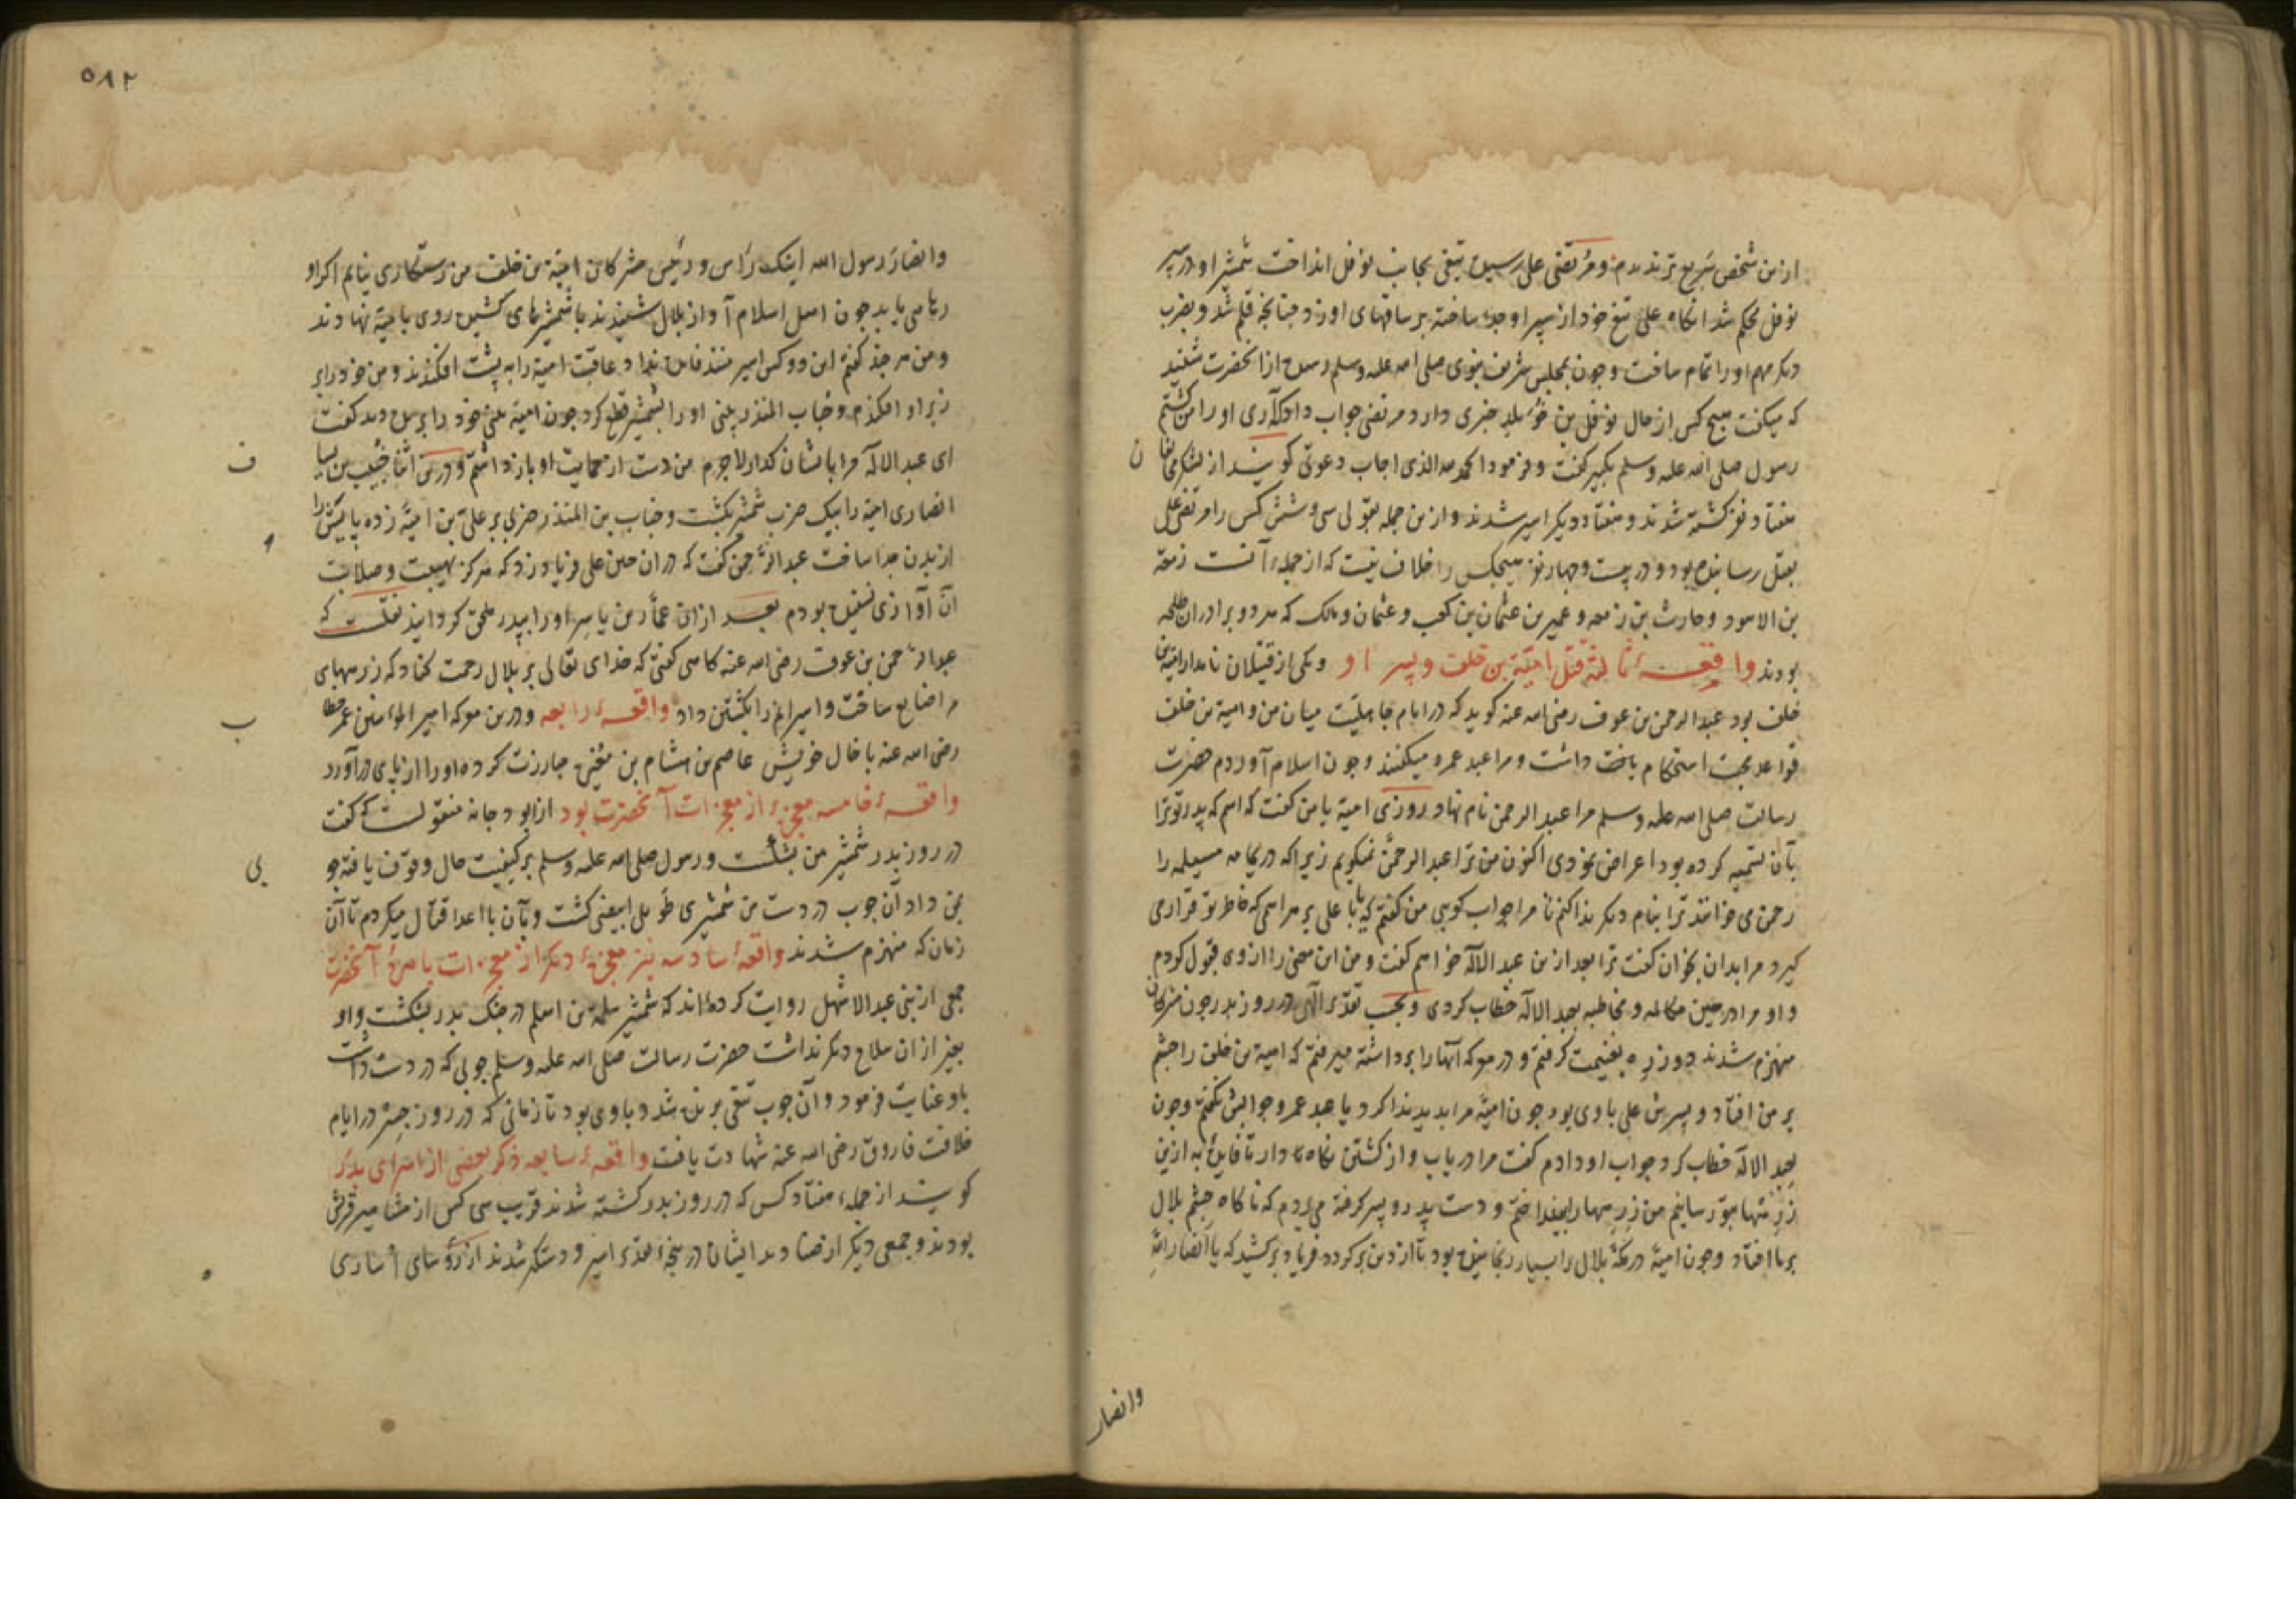 ازین شخص سریع تر ندیدم و مرتضی علی رسیده تیغی بجانب نوفل انداخت شمشیر او در سپر
نوفل محکم شد انکاه علی تیغ خود از سپر او جدا ساخته بر ساقهای او زد چنانچه قلم شد و بضرب
دیکر مهم او را تمام ساخت و چون بمجلس شریف نبوی صلی الله علیه وسلم رسید از انحضرت شنید
که میکفت هیچ کس از حال نوفل بن خویلد خبری دارد مرتضی جواب داد که آری او را من کشتم
رسول صلی الله علیه وسلم تکبیر کفت و فرمود الحمد لله الذی اجاب دعوتی کویند از لشکر مخالفان
هفتاد نفر کشته شدند و هفتاد دیکر اسیر شدند و ازین جمله بقولی سی و شش کس را مرتضی علی
بقتل رسانیده بود و در بیست و چهار نفر هیچکس را خلاف نیست که از جمله آنست زمعة
بن الاسود و حارث بن زمعه و عمیر بن عثمان بن کعب و عثمان و مالک که هر دو برادران طلحه
بودند واقعهٔ ثالثة قتل امیّة بن خلف و پسر او و یکی از قتیلان نامدار امیة بن
خلف بود عبد الرحمن بن عوف رضی الله عنه کوید که در ایام جاهلیّت میان من و امیة بن خلف
قواعد محبت استحکام یافت داشت و مرا عبد عمرو میکفتند و چون اسلام آوردم حضرت
رسالت صلی الله علیه وسلم مرا عبد الرحمن نام نهاد روزی امیة با من کفت که اسم که پدر تو ترا
بآن تسمیه کرده بود اعراض نمودی اکنون من ترا عبد الرحمن نمیکویم زیرا که در یمامه مسیلمه را
رحمن می خوانند ترا بنام دیکر ندا کنم تا مرا جواب کویی من کفتم که یا با علی بر هر اسمی که خاطر تو قرار می
کیرد مرا بدان بخوان کفت ترا بعد ازین عبد الاله خواهم کفت و من این معنی را از وی قبول کردم
و او مرا در حین مکالمه و مخاطبه بعبد الاله خطاب کردی و بحسب تقدیر الهی در روز بدر چون مشرکان
منهزم شدند دو زره بغنیمت کرفتم و در معرکه آنها را برداشته میرفتم که امیة بن خلف را چشم
بر من افتاد و پسرش علی با وی بود چون امیّه مرا بدید ندا کرد یا عبد عمرو جوابش نکفتم و چون
بعبد الاله خطاب کرد جواب او دادم کفت مرا دریاب و از کشتن نکاه دار تا فایدهٔ به ازین
زره تنها بتو رسانیم من زره ها را بینداختم و دست پدر و پسر کرفته می بردم که ناکاه چشم بلال
بر ما افتاد و چون امیّه در مکه بلال را بسیار رنجانیده بود تا از دین برکردد فریاد برکشید که یا انصار الله
وانصار
۵۸۲
وانصار رسول الله اینک راس و رئیس مشرکان امیّة بن خلف من رستکاری نیابم اکر او
رهایی یابد چون اهل اسلام آواز بلال شنیدند با شمشیرهای کشیده روی بامیّة نهادند
و من هر چند کفتم این دو کس اسیر منند فایده نداد و عاقبت امیة را به پشت افکندند و من خود را بر
زبر او افکندم و خباب المنذر بینی او را بشمشیر قطع کرد چون امیّة بینی خود را بریده دید کفت
ای عبد الاله مرا با ایشان کذار لاجرم من دست از حمایت او باز داشتم و درین اثنا خبیب بن یسا
ف
انصاری امیّة را بیک ضرب شمشیر بکشت و خباب بن المنذر ضربی بر علی بن امیّه زده پایش را
از بدن جدا ساخت عبد الرحمن کفت که در ان حین علی فریاد زد که هرکز بهیبت و صلابت
ان آوازی نشنیده بودم بعد ازان عمار بن یاسر او را بپدر ملحق کردانید نقلست که
عبد الرحمن بن عوف رضی الله عنه کاهی کفتی که خدای تعالی بر بلال رحمت کناد که زره های
مرا ضایع ساخت و اسیرانم را بکشتن داد واقعهٔ رابعه و درین معرکه امیر المؤمنین عمر خطا
ب
رضی الله عنه با خال خویش عاصم بن هشام بن مغیره مبارزت کرده او را از پای درآورد
واقعهٔ خامسه معجزهٔ از معجزات آنحضرت بود از ابو دجانه منقولست که کفت
در روز بدر شمشیر من بشکست و رسول صلی الله علیه وسلم بر کیفیت حال وقوف یافته چو
بی
بمن داد آن چوب در دست من شمشیری طویل ابیض کشت و بآن با اعدا قتال میکردم تا آن
زمان که منهزم شدند واقعهٔ سادسه نیز معجزهٔ دیکر از معجزات باهرهٔ آنحضرت
جمعی از بنی عبد الاشهل روایت کرده اند که شمشیر سلمة بن اسلم در جنک بدر بشکست و او
بغیر ازان سلاح دیکر نداشت حضرت رسالت صلی الله علیه وسلم چوبی که در دست داشت
باو عنایت فرمود و آن چوب تیغی برنده شد و با وی بود تا زمانی که در روز جسر در ایام
خلافت فاروق رضی الله عنه شهادت یافت واقعهٔ سابعه ذکر بعضی از اسرای بدر
کویند از جمله هفتاد کس که در روز بدر کشته شدند قریب سی کس از مشاهیر قریش
بودند و جمعی دیکر از صنادید ایشان در پنجهٔ تقدیر اسیر و دستکیر شدند از رؤسای اساری